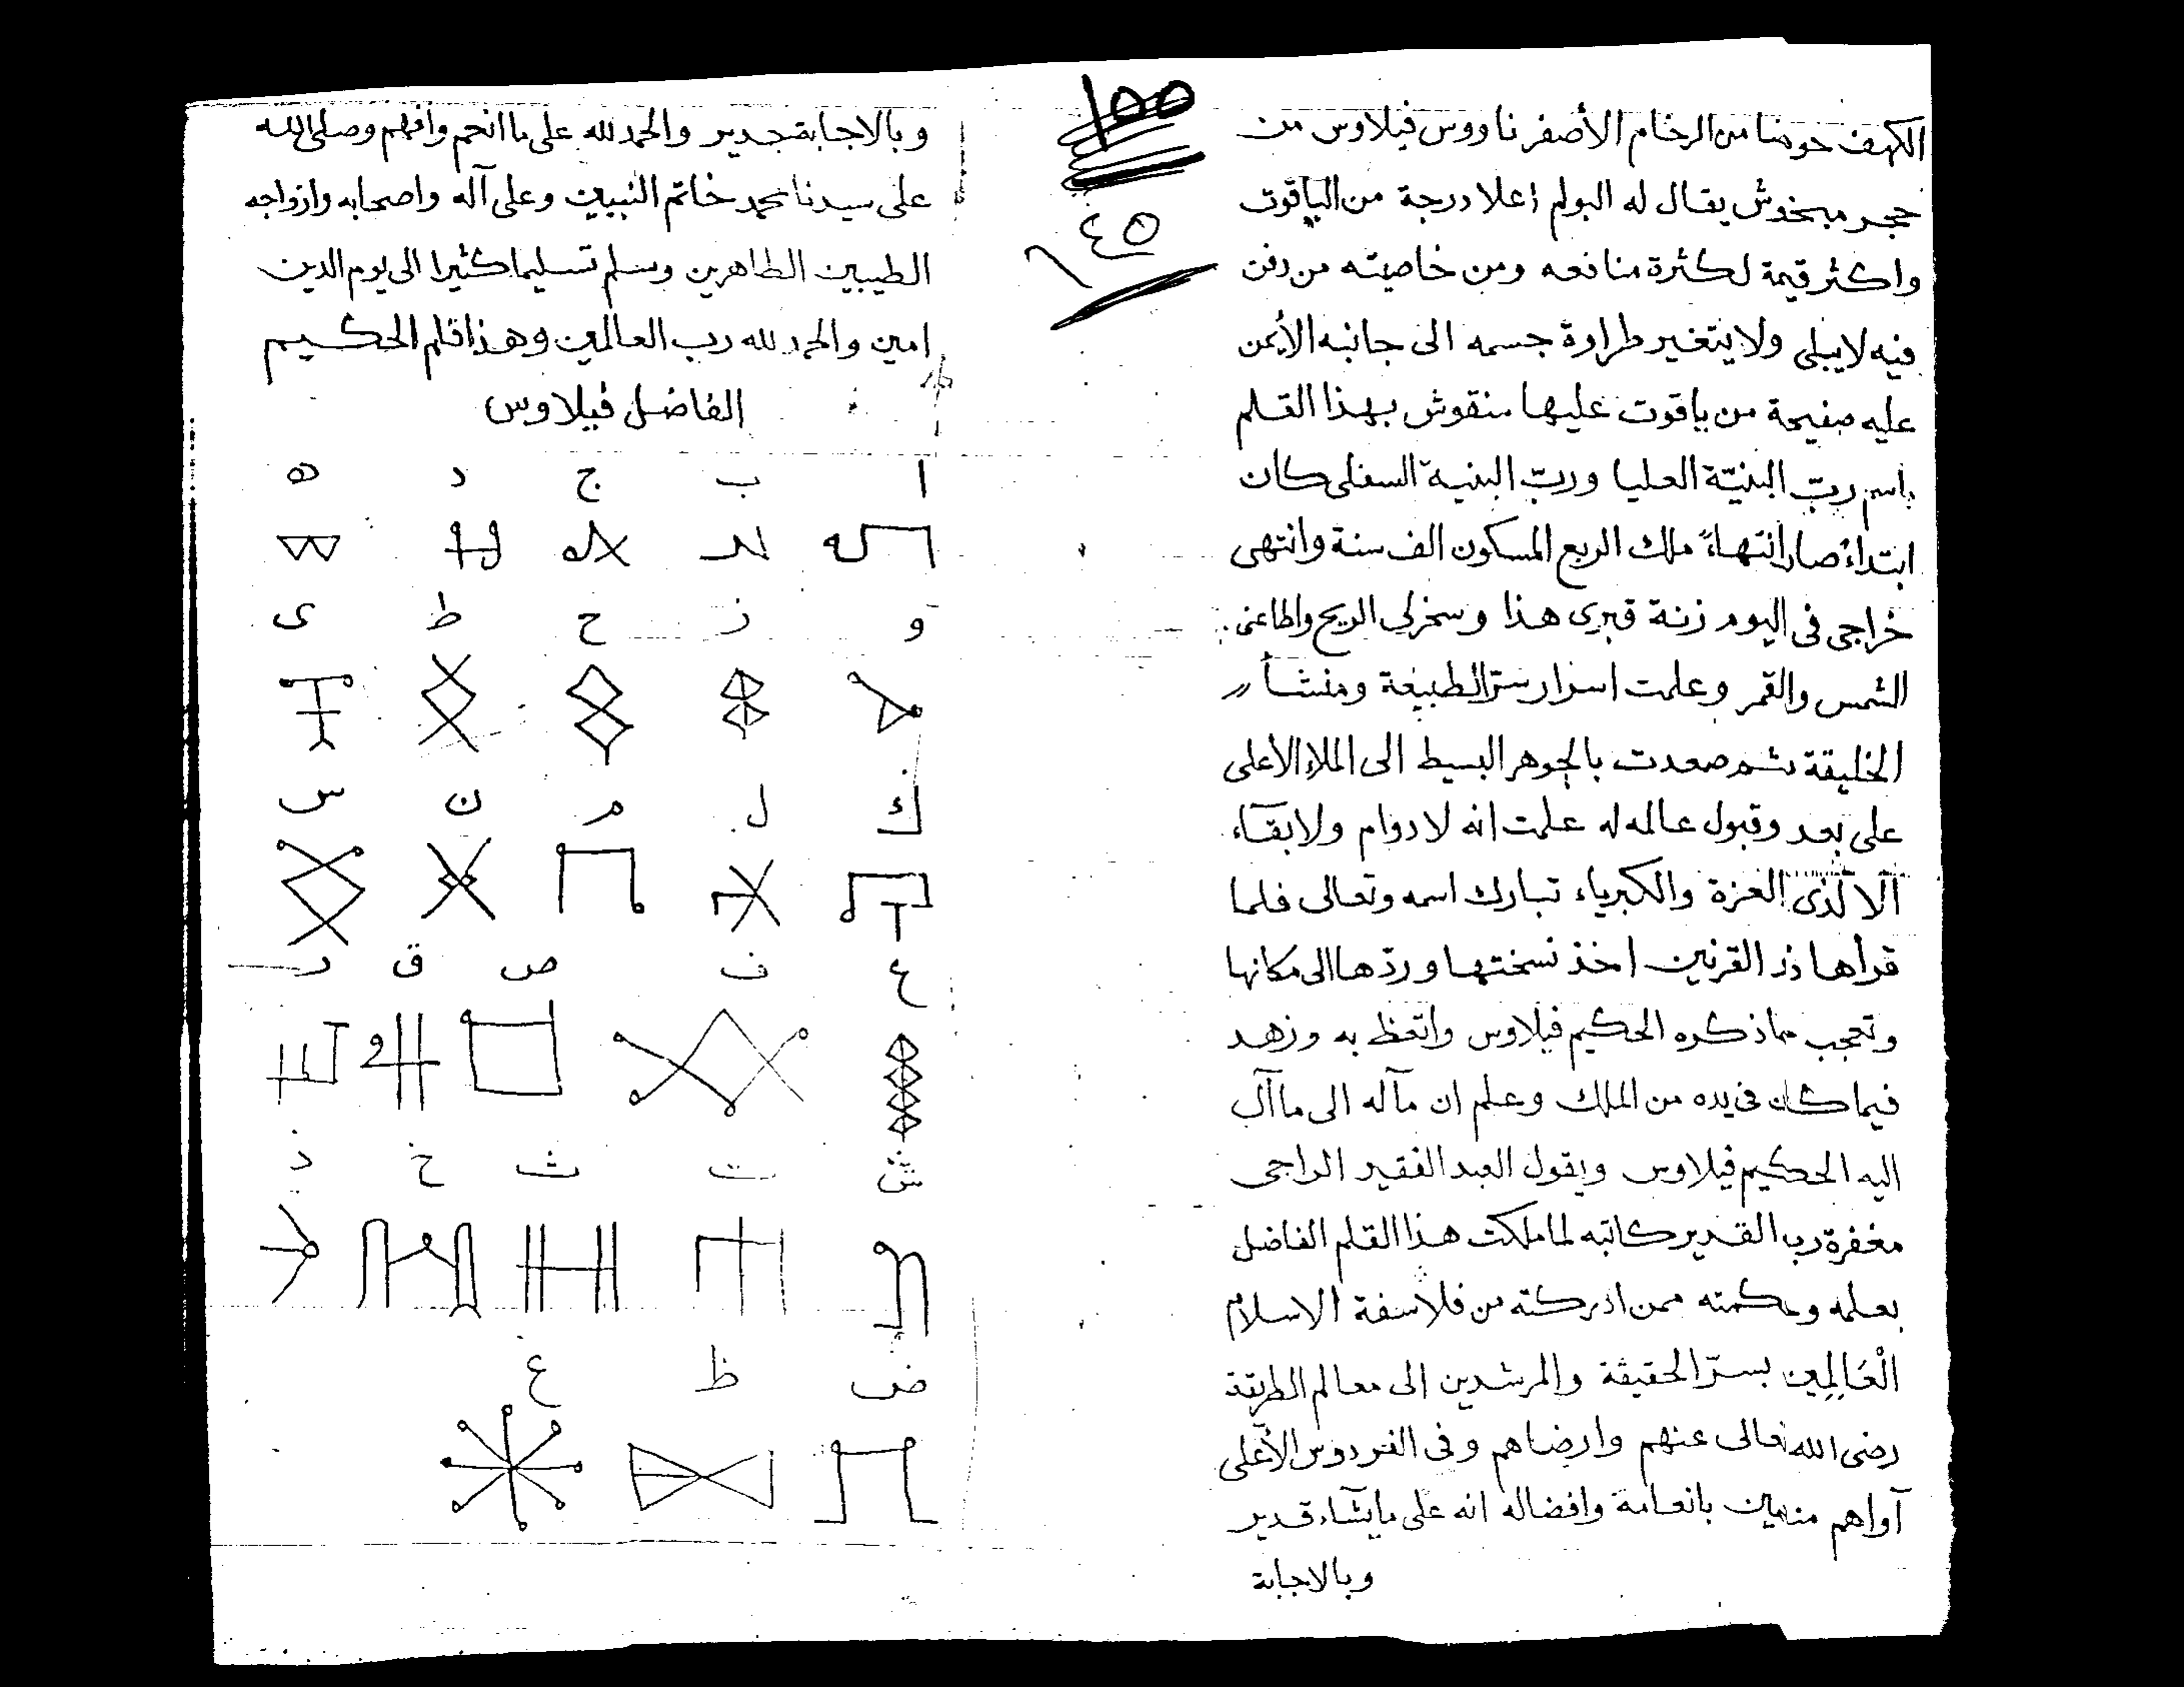 الكهف حوضا من الرخام الأصفر ناووس فيلاوس من
حجر مبخوش يقال له البولم اعلا درجة من الياقوت
واكثر قيمة لكثرة منافعه ومن خاصيته من دفن
فيه لا يبلى ولا يتغير طراوة جسمه الى جانبه الأيمن
عليه صفيحة من ياقوت عليها منقوش بهذا القلم
باسم ربّ البنيّة العليا وربّ البنية السفلى كان
ابتداء صار انتهاءً ملك الربع المسكون الف سنة وانتهى
خراجى فى اليوم زنة قبرى هذا وسخرلى الريح واطاعنى
الشمس والقمر وعلمت اسرار سرّ الطبيعة ومنشأ
الخليقة ثم صعدت بالجوهر البسيط الى الملاء الأعلى
على بعد وقبول عالمه له علمت انه لا دوام ولا بقآء
الا لذى العزة والكبرياء تبارك اسمه وتعالى فلما
قرأها ذو القرنين اخذ نسختها وردّها الى مكانها
وتعجب مما ذكره الحكيم فيلاوس واتعظ به وزهد
فيما كان فى يده من الملك وعلم ان مآله الى ما آل
اليه الحكيم فيلاوس ويقول العبد الفقير الراجى
مغفرة رب القدير كاتبه لما ملكت هذا القلم الفاضل
بعلمه وحكمته ممن ادركته من فلاسفة الاسلام
الْعَالِمِين بسرّ الحقيقة والمرشدين الى معالم الطريقة
رضى الله تعالى عنهم وارضاهم وفى الفردوس الأعلى
آواهم بانعامه وافضاله انه على ما يشآء قدير
وبالاجابة
١٥٥
٤٥
وبالاجابة جدير والحمد لله على ما انعم وافهم وصلى الله
على سيدنا محمد خاتم النبيين وعلى آله واصحابه وازواجه
الطيبين الطاهرين وسلم تسليما كثيرا الى يوم الدين
امين والحمد لله رب العالمين وهذا قلم الحكيم
الفاضل فيلاوس
ا ب ج د ه
و ز ح ط ى
ك ل م ن س
ع ف ص ق ر
ش ت ث خ ذ
ض ظ غ